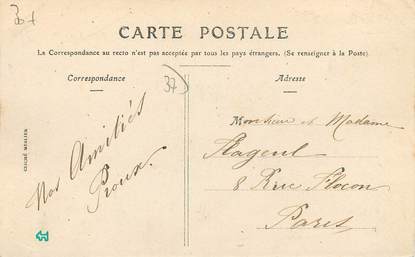 30f
CARTE POSTALE
La Correspondance au recto n'est pas acceptée par tous les pays étrangers. (Se renseigner à la Poste).
Correspondance
37
Adresse
Nos Amitiés
Proux.
Monsieur et Madame
8 Rue Flocon
Paris